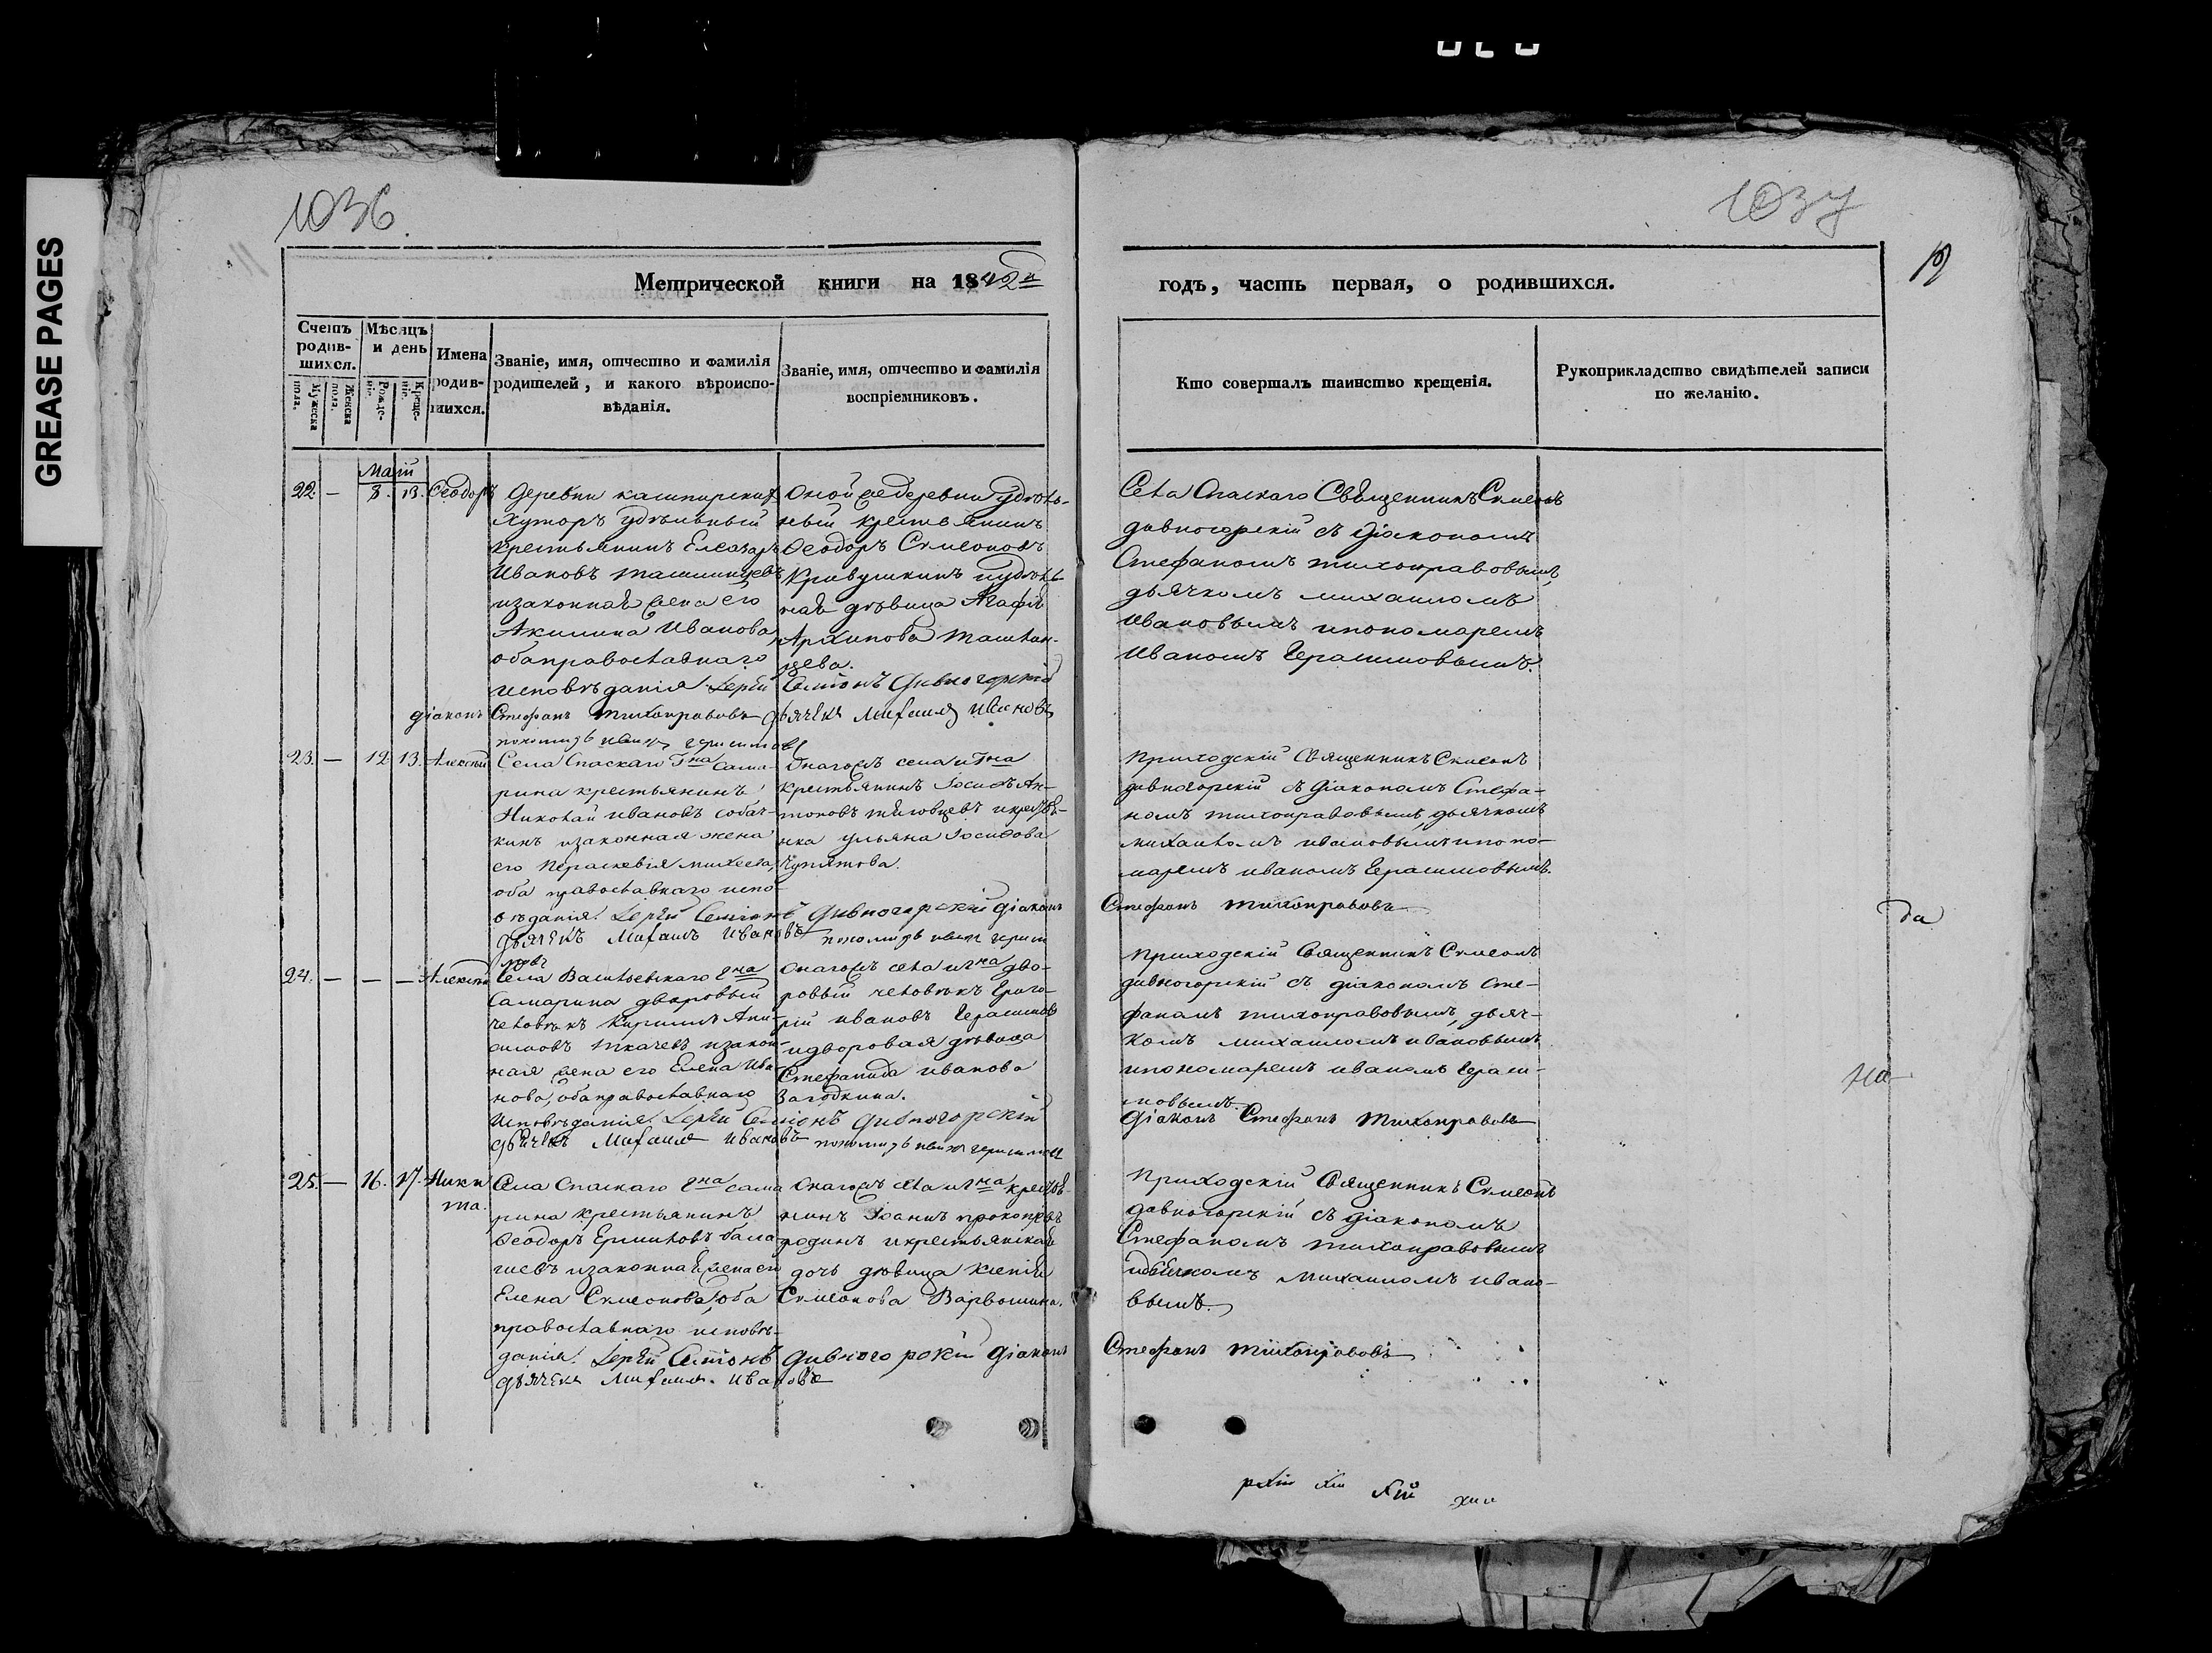 GREASE PAGES
1036.
1037
Метрической книги на 1842й
годъ, часть первая, о родившихся.
Счетъ родив-
шихся.
Мужеска пола.
Женска пола.
Мѣсяцъ и день
Рожде-
нія.
Креще-
нія.
Имена
родив-
шихся.
Званіе, имя, отчество и фамилія
родителей, и какого вѣроиспо-
вѣданія.
Званіе, имя, отчество и фамилія
воспріемниковъ.
Кто совершалъ таинство крещенія.
Рукоприкладство свидѣтелей записи
по желанію.
Маій
22. — 8. 13. Ѳеодоръ
Деревни кашпирскихъ
Хуторъ удѣльный
крестьянинъ Елеазаръ
Ивановъ
изаконная жена его
Акилина Иванова,
обаправославнаго
исповѣданія. Іерѣй Симіонъ Дивногорскій
діаконъ Стефанъ Тихонравовъ дьячекъ Михаилъ Ивановъ
Оной же деревни удѣль-
ный крестьянинъ
Ѳеодоръ Симеоновъ
Кривушкинъ иудѣль-
ная дѣвица Агафія
Архипова Ташлан-
цева.
Села Спаскаго Священникъ Симеонъ
дивногорскій съ діакономъ
Стефаномъ тихонравовымъ,
дьячкомъ михаиломъ
Ивановымъ ипономаремъ
Иваномъ Герасимовымъ.
23. — 12. 13. Алексѣй
Села Спаскаго Гна Сама-
рина крестьянинъ
Николай ивановъ собач-
кинъ изаконная жена
его Параскевія
оба православнаго испо-
вѣданія. Іерѣй Симіонъ Дивногорскій діаконъ
дьячекъ Михаилъ Ивановъ
Онагожъ села иГна
крестьянинъ Іосифъ Ан-
тоновъ
ульяна Іосифова
Приходскій Священникъ Симеонъ
дивногорскій съ діакономъ Стефа-
номъ тихонравовымъ, дьячкомъ
михаиломъ ивановымъ ипоно-
маремъ иваномъ Герасимовымъ.
Стефанъ тихонравовъ
да
24. — — — Алексѣй
Села Васильевскаго Гна
Самарина дворовый
человѣкъ Кириллъ Ани-
симовъ ткачевъ изакон-
ная жена его Елена Ива-
нова, обаправославнаго
Исповѣданія. Іерѣй Симіонъ Дивногорскій
дьячекъ Михаилъ Ивановъ
Онагожъ села игна дво-
ровый человѣкъ Григо-
рій ивановъ Герасимовъ
идворовая дѣвица
Стефанида иванова
Загодкина.
Приходскій Священникъ Симеонъ
дивногорскій съ діакономъ Сте-
фаномъ тихонравовымъ, дьяч-
комъ михаиломъ ивановымъ
ипономаремъ иваномъ Гераси-
мовымъ.
Діаконъ Стефанъ Тихонравовъ
на
25. — 16. 17. Ники
та.
Села Спаскаго Гна сама
рина крестьянинъ
Ѳеодоръ Ермиловъ бала
шевъ изаконная жена его
Елена Симеонова, оба
православнаго исповѣ-
данія. Іерѣй Симіонъ Дивногорскій Діаконъ
дьячекъ Михаилъ Ивановъ
Онагожъ села игна
Іоаннъ прокопіевъ
родинъ икрестьянская
дочь дѣвица Ксенія
Симеонова Варвошина.
Приходскій Священникъ Симеонъ
дивногорскій съ діакономъ
Стефаномъ тихонравовымъ
идьячкомъ Михаиломъ ивано-
вымъ.
Стефанъ тихонравовъ